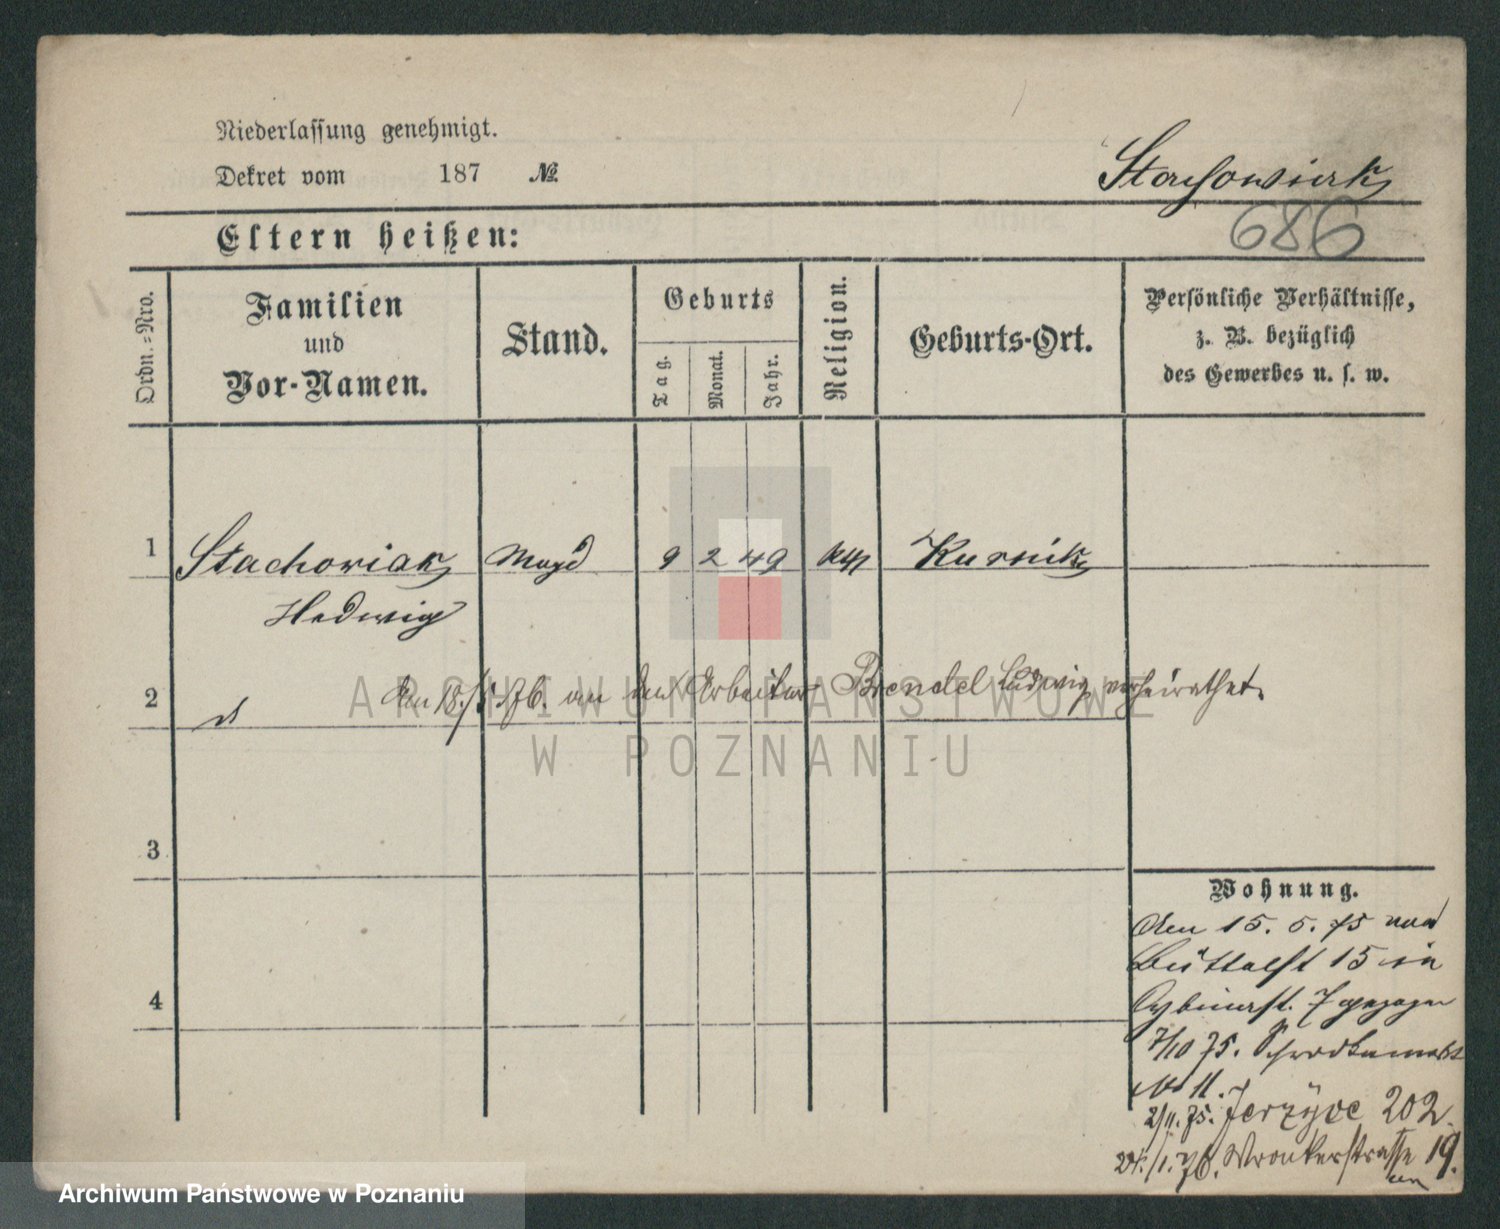 Niederlassung genehmigt.
Dekret vom 187 №
Stachowiak
686
Eltern heißen:
Ordn.=Nro.
Familien
und
Vor-Namen.
Stand.
Geburts
Tag.
Monat.
Jahr.
Religion.
Geburts-Ort.
Persönliche Verhältnisse,
z. B. bezüglich
des Gewerbes u. s. w.
1 Stachowiak Magd 9 2 49 Kurnik
Hedwig
2 den 18./ 76. an den Arbeiter Brendel Ludwig verheirathet.
ARCHIWUM PAŃSTWOWE
W POZNANIU
3
Wohnung.
den 15. 5. 75 von
Büttelst 15 in
7 gezogen
4
7/10 75. Schrodkamarkt
No 11.
2/11. 75. Jerzyce 202.
24./1. 76. Wronkerstrasse 19.
Archiwum Państwowe w Poznaniu